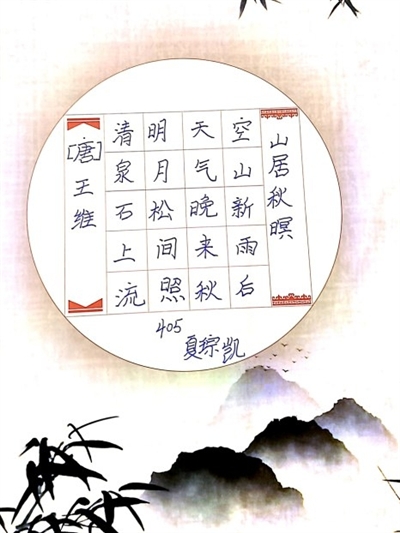 山居秋暝
空山新雨后
天气晚来秋
明月松间照
清泉石上流
[唐]王维
405
夏琮凯